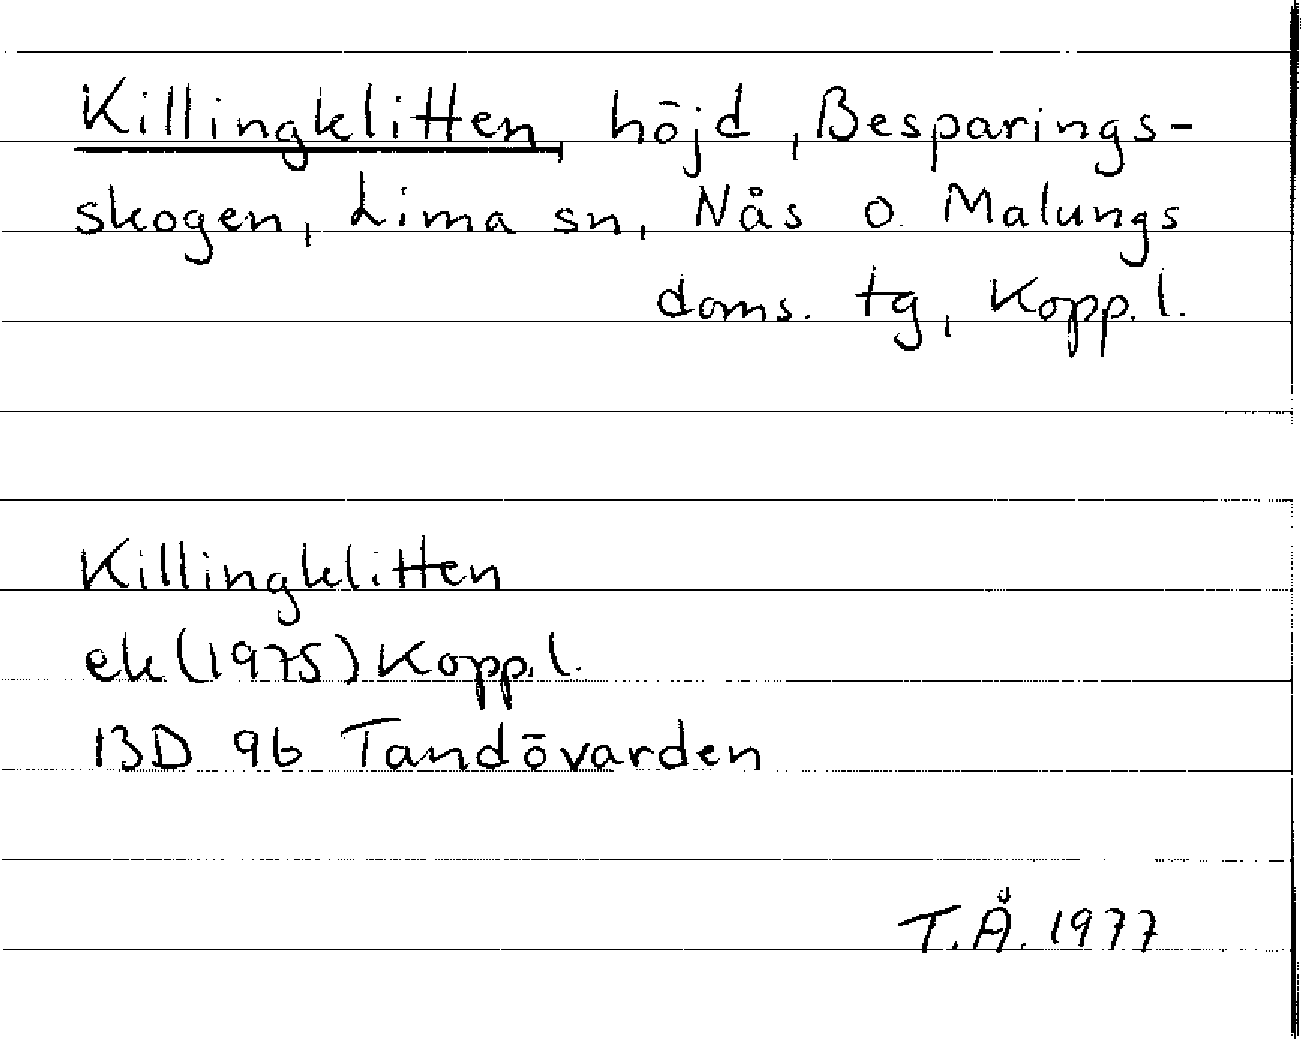 Killingklitten, höjd, Besparings-
skogen, Lima sn, Nås o. Malungs
doms. tg, Kopp. l.
Killingklitten
ek (1975) Kopp. l.
13D 9b Tandövarden
T.Å. 1977